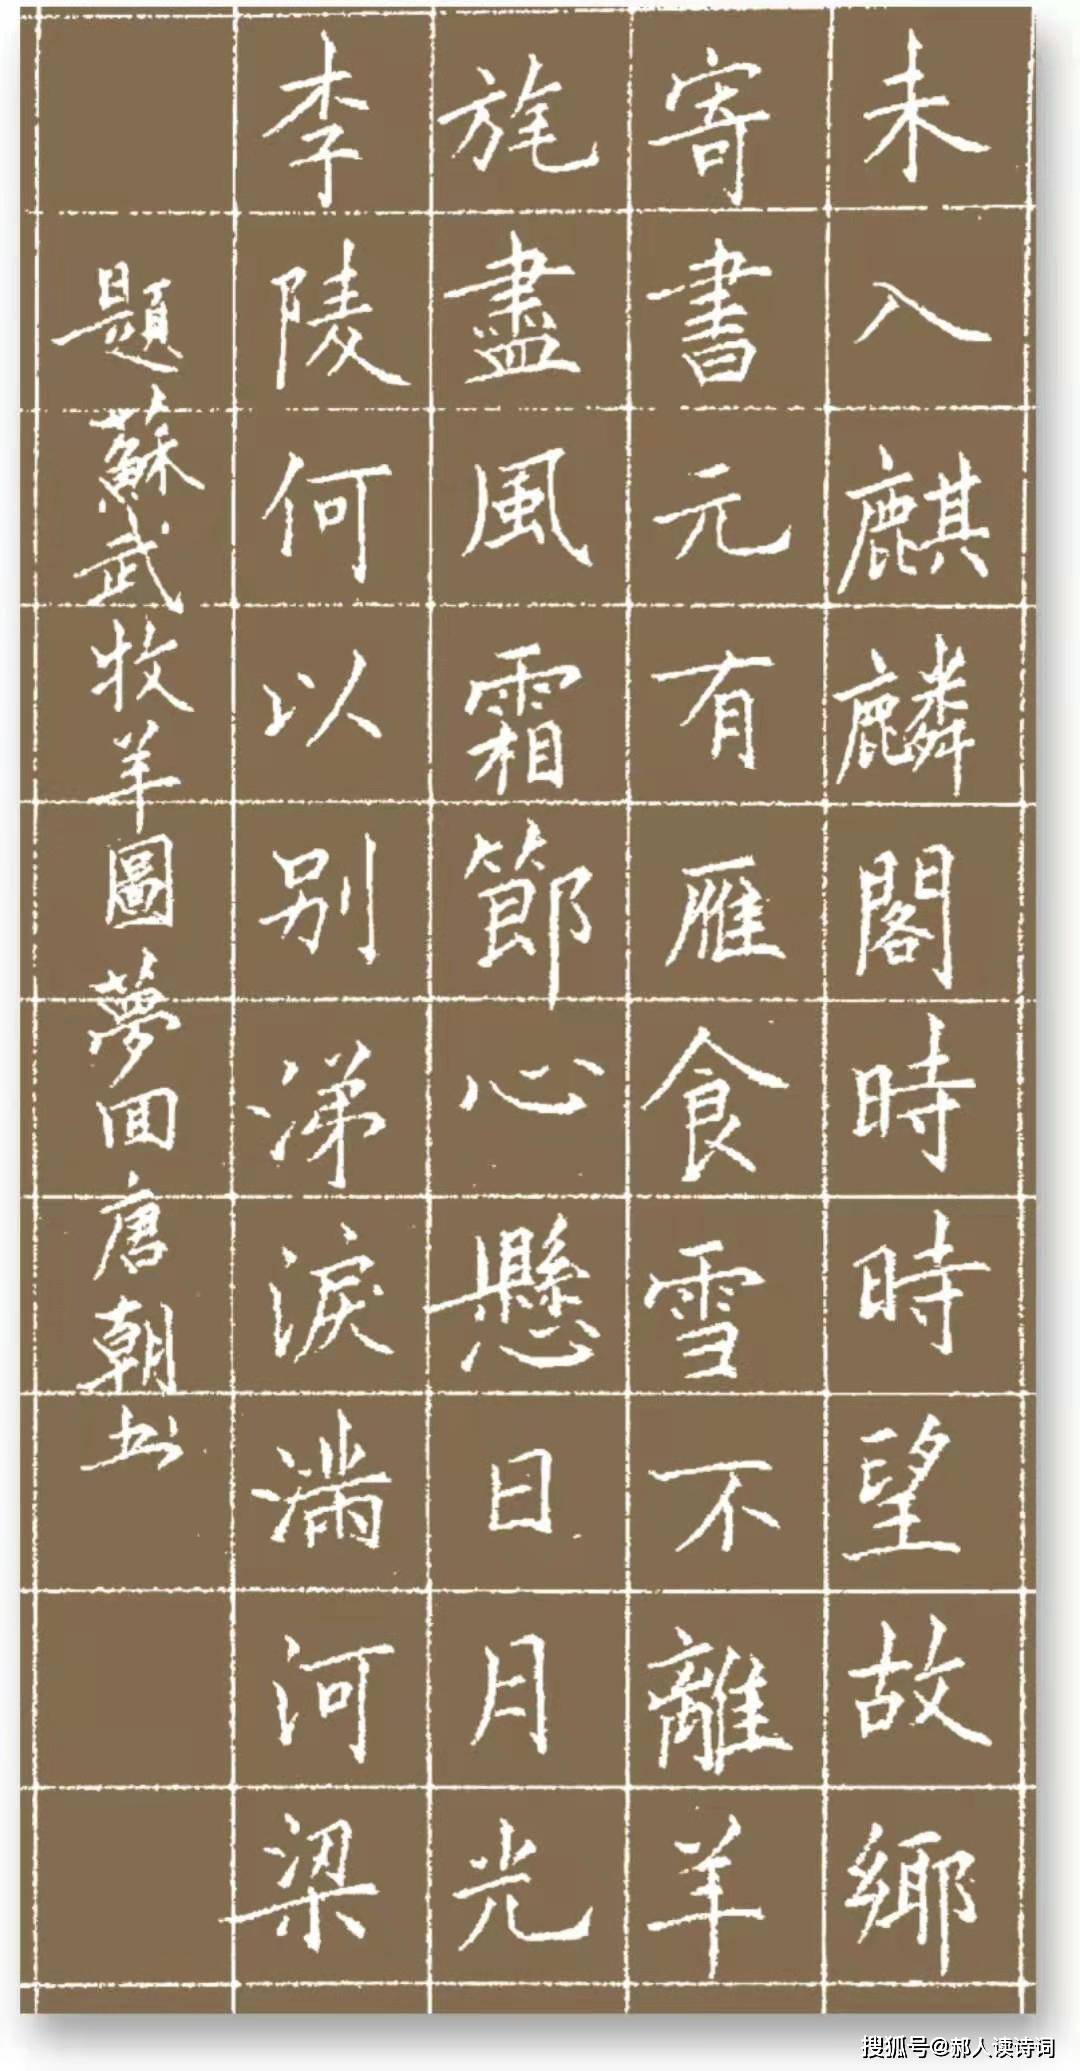 未入麒麟閣時時望故鄉
寄書元有雁食雪不離羊
旄盡風霜節心懸日月光
李陵何以别涕淚滿河梁
題蘇武牧羊圖夢回唐朝书
搜狐号@郝人读诗词